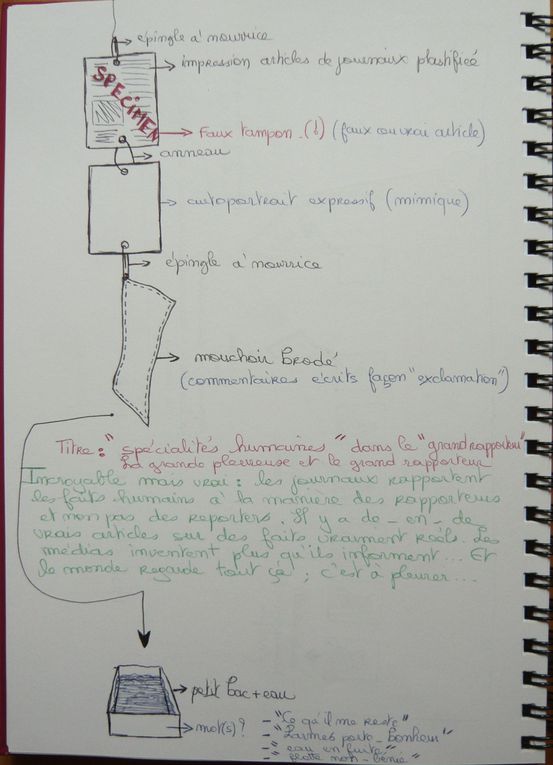 épingle à nourrice
impression articles de journaux plastifiée
SPECIMEN
Faux tampon (!) (faux ou vrai article)
anneau
autoportrait expressif (mimique)
épingle à nourrice
mouchoir brodé
(commentaires écrits façon "exclamation")
Titre : "spécialités humaines" dans le "grand rapporteur"
La grande pleureuse et le grand rapporteur
Incroyable mais vrai : les journaux rapportent
les faits humains à la manière des rapporteurs
et non pas des reporters. Il y a de - en - de
vrais articles sur des faits vraiment réels. Les
médias inventent plus qu'ils informent... Et
le monde regarde tout ça ; c'est à pleurer...
petit bac + eau
mot(s) ?
- "Ce qu'il me reste"
- "Larmes porte-bonheur"
- "eau en fuite"
- flotte non-bénie"